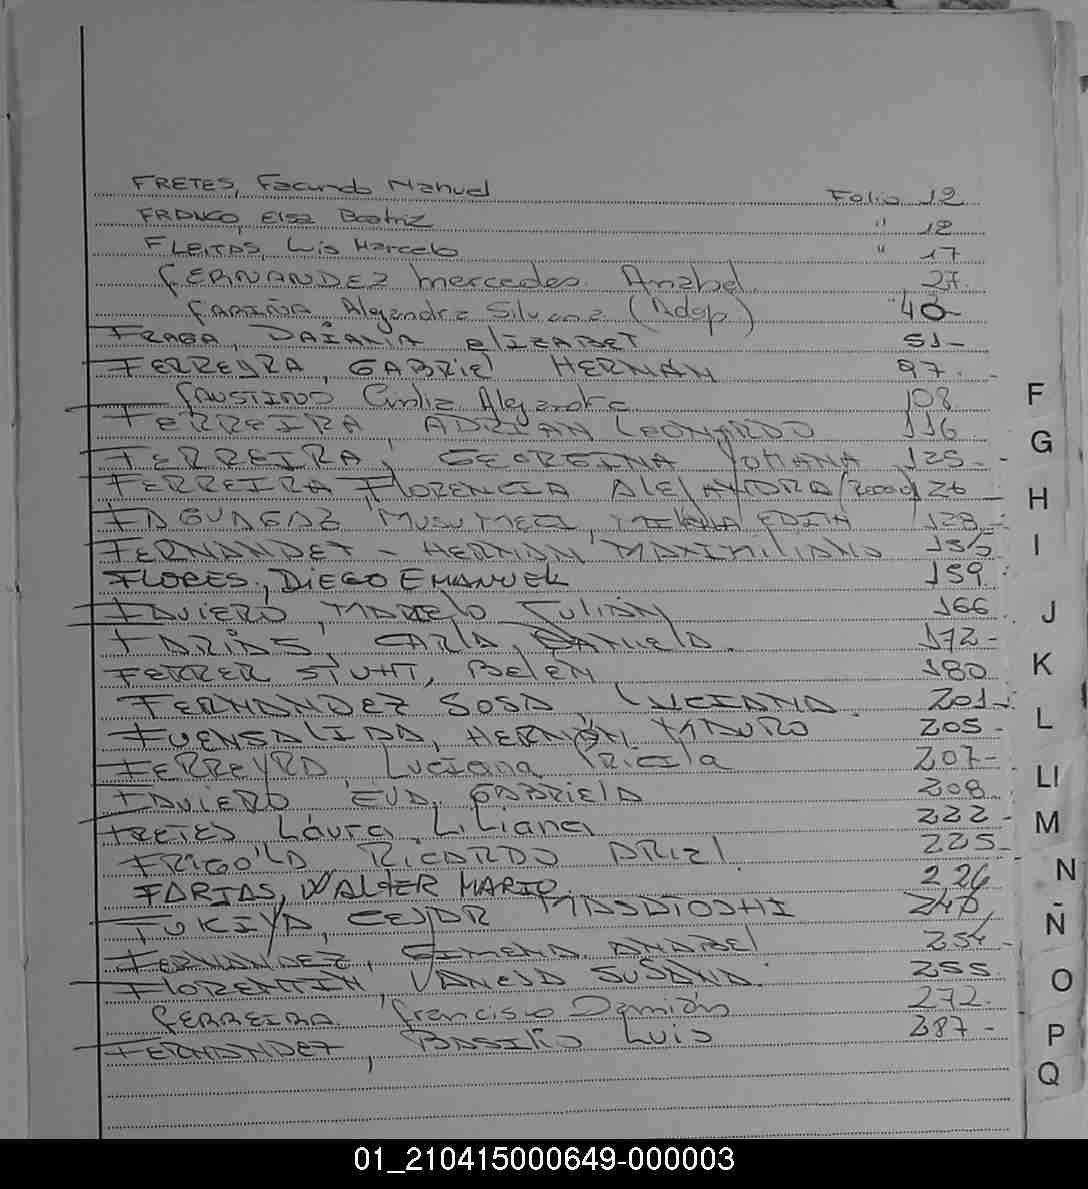 FRETES, Facundo Manuel Folio 12
FRANCO, Elsa Beatriz " 12
FLEITAS, Luis Marcelo " 17
FERNANDEZ Mercedes Anabel 27.
FARIÑA Alejandra Silvana (Adop) " 40-
FRAGA, DAIANA ELIZABET 51-
FERREYRA, GABRIEL HERNAN 97.
FAUSTINO Cintia Alejandra 108
FERREIRA ADRIAN LEONARDO 116
FERREIRA, GEORGINA YOHANA 125-
FERREIRA, FLORENCIA ALEJANDRA 126
MILENA EDITH 128-
FERNANDEZ - HERNAN MAXIMILIANO 135
FLORES, DIEGO EMANUEL 159
FAVIERO, MARCELO JULIÁN 166
FARIAS, CARLA DANIELA. 172-
FERRER STUHT, BELEN 180
FERNANDEZ SOSA, LUCIANA. 201-
FUENSALIDA, HERNÁN MAURO 205-
FERREYRA, Luciana Pricila 207-
FAVIERO EVA GABRIELA 208
FRETES Laura Liliana 222-
FRIGOLA RICARDO ARIEL 225-
FARIAS, WALTER MARIO. 226
FUKIYA, CESAR MASATOSHI 240
FERNANDEZ, GIMENA ANABEL 254-
FLORENTIN, VANESA SUSANA. 255-
FERREIRA Francisco Damián 272-
FERNANDEZ, BASILIO LUIS 287-
F
G
H
I
J
K
L
Ll
M
N
Ñ
O
P
Q
01_210415000649-000003